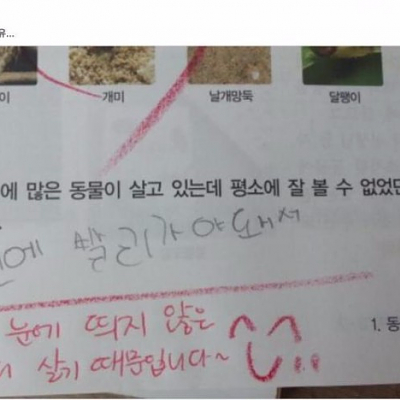 유...
이 개미 날개망둑 달팽이
에 많은 동물이 살고 있는데 평소에 잘 볼 수 없었던
에 빨리가야되서
눈에 띄지 않은
살기 때문입니다~
1. 동